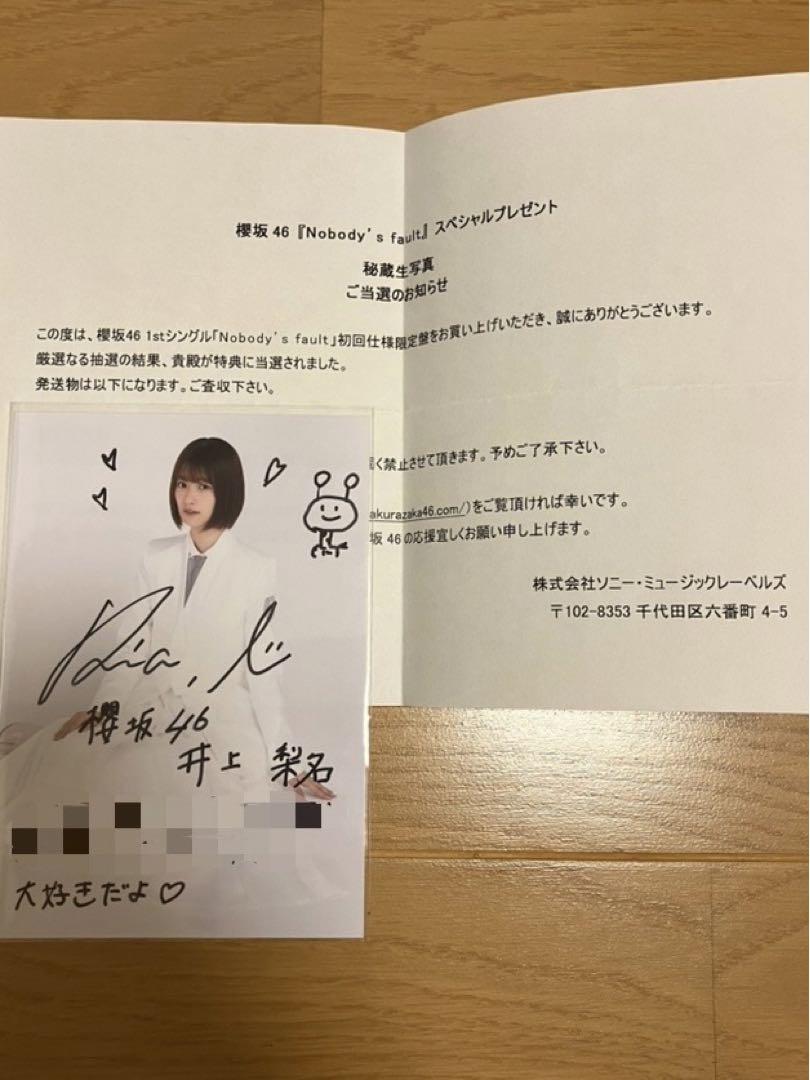 櫻坂46『Nobody's fault』スペシャルプレゼント
秘蔵生写真
ご当選のお知らせ
この度は、櫻坂46 1stシングル「Nobody's fault」初回仕様限定盤をお買い上げいただき、誠にありがとうございます。
厳選なる抽選の結果、貴殿が特典に当選されました。
発送物は以下になります。ご査収下さい。
く禁止させて頂きます。予めご了承下さい。
akurazaka46.com/)をご覧頂ければ幸いです。
坂46の応援宜しくお願い申し上げます。
株式会社ソニー・ミュージックレーベルズ
〒102-8353 千代田区六番町4-5
櫻坂46
井上 梨名
大好きだよ♡